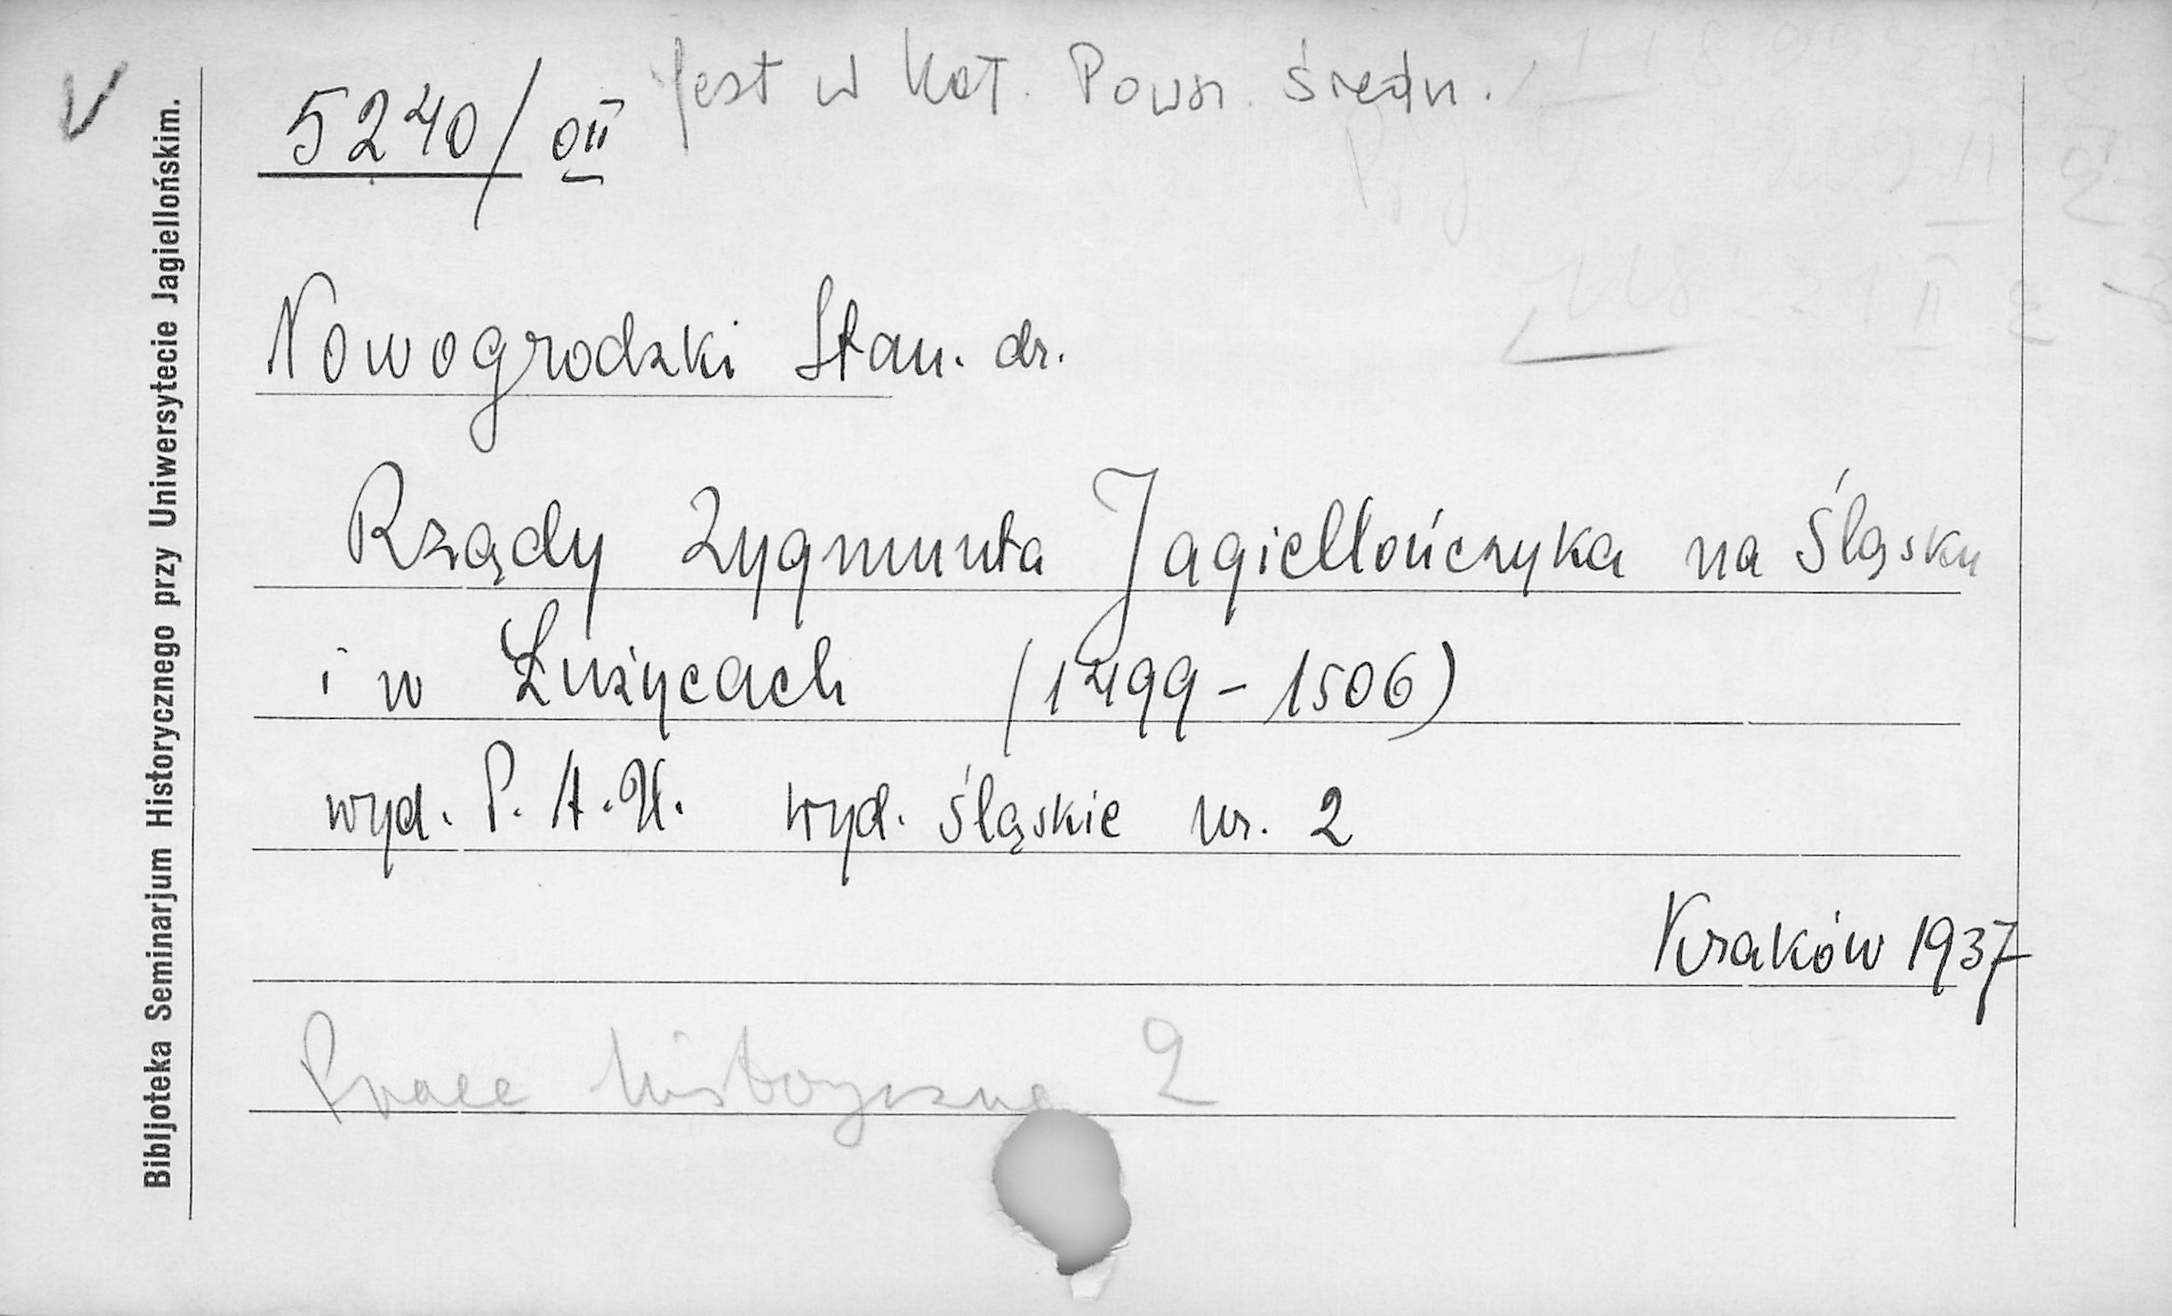 Jest w Kat. Powsz. średn.
5240/OII
Nowogrodzki Stan. dr.
Rządy Zygmunta Jagiellończyka na Śląsku
i w Łużycach (1499-1506)
wyd. P.A.U. wyd. śląskie nr. 2
Kraków 1937
Prace historyczne 2
Bibljoteka Seminarjum Historycznego przy Uniwersytecie Jagiellońskim.